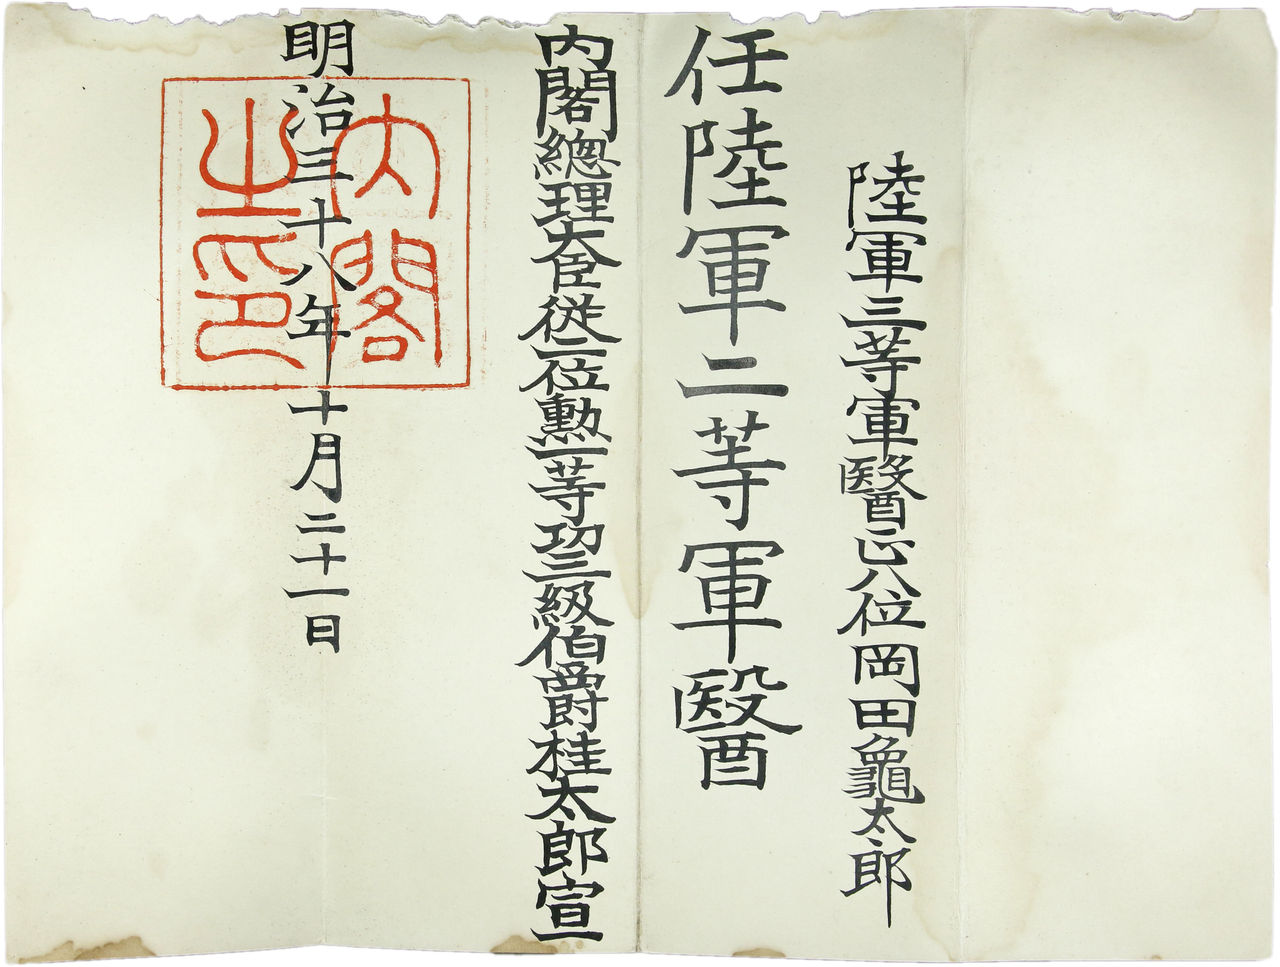 陸軍三等軍醫正八位岡田龜太郎
任陸軍二等軍醫
内閣總理大臣從一位勲一等功三級伯爵桂太郎宣
明治三十八年十月二十一日
内閣之印